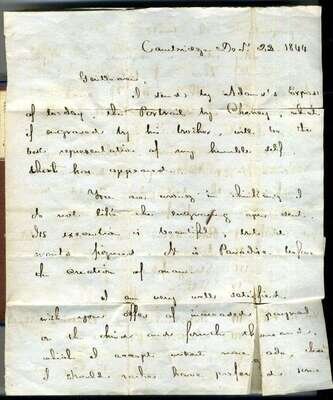 Cambridge Dec. 22 1844
Gentlemen,
I send by Adams's Express
of today, the Portrait by Cheney, which
if engraved by his brother, will be the
best representation of my humble self
that has appeared.
You are wrong in thinking I
do not like the engraving you sent.
Its execution is beautiful; but it
wants figures. It is Paradise before
the creation of man.
I am very well satisfied
with your offer of increased payment
on the third and fourth thousands,
which I accept
I should rather have preferred some